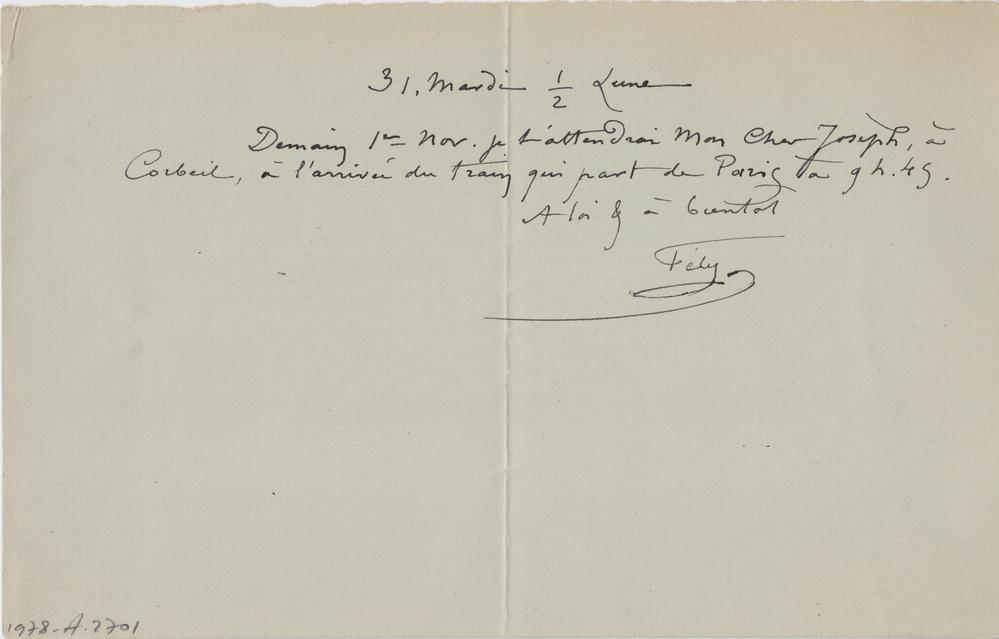 31, Mardi 1/2 Lune
Demain 1er Nov. je t'attendrai Mon Cher Joseph, à
Corbeil, à l'arrivée du train qui part de Paris à 9 h. 45.
A toi & à bientot
Fély
1978-A.2701